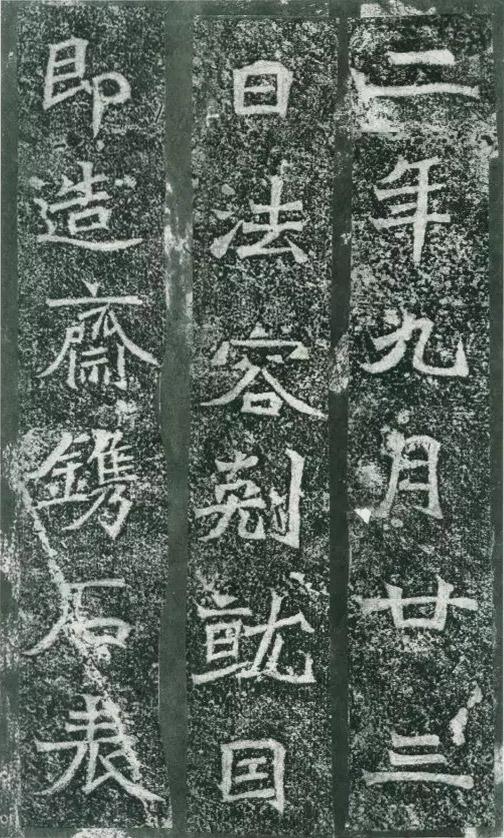 二年九月廿三
日法容剋就因
即造齋鐫石表